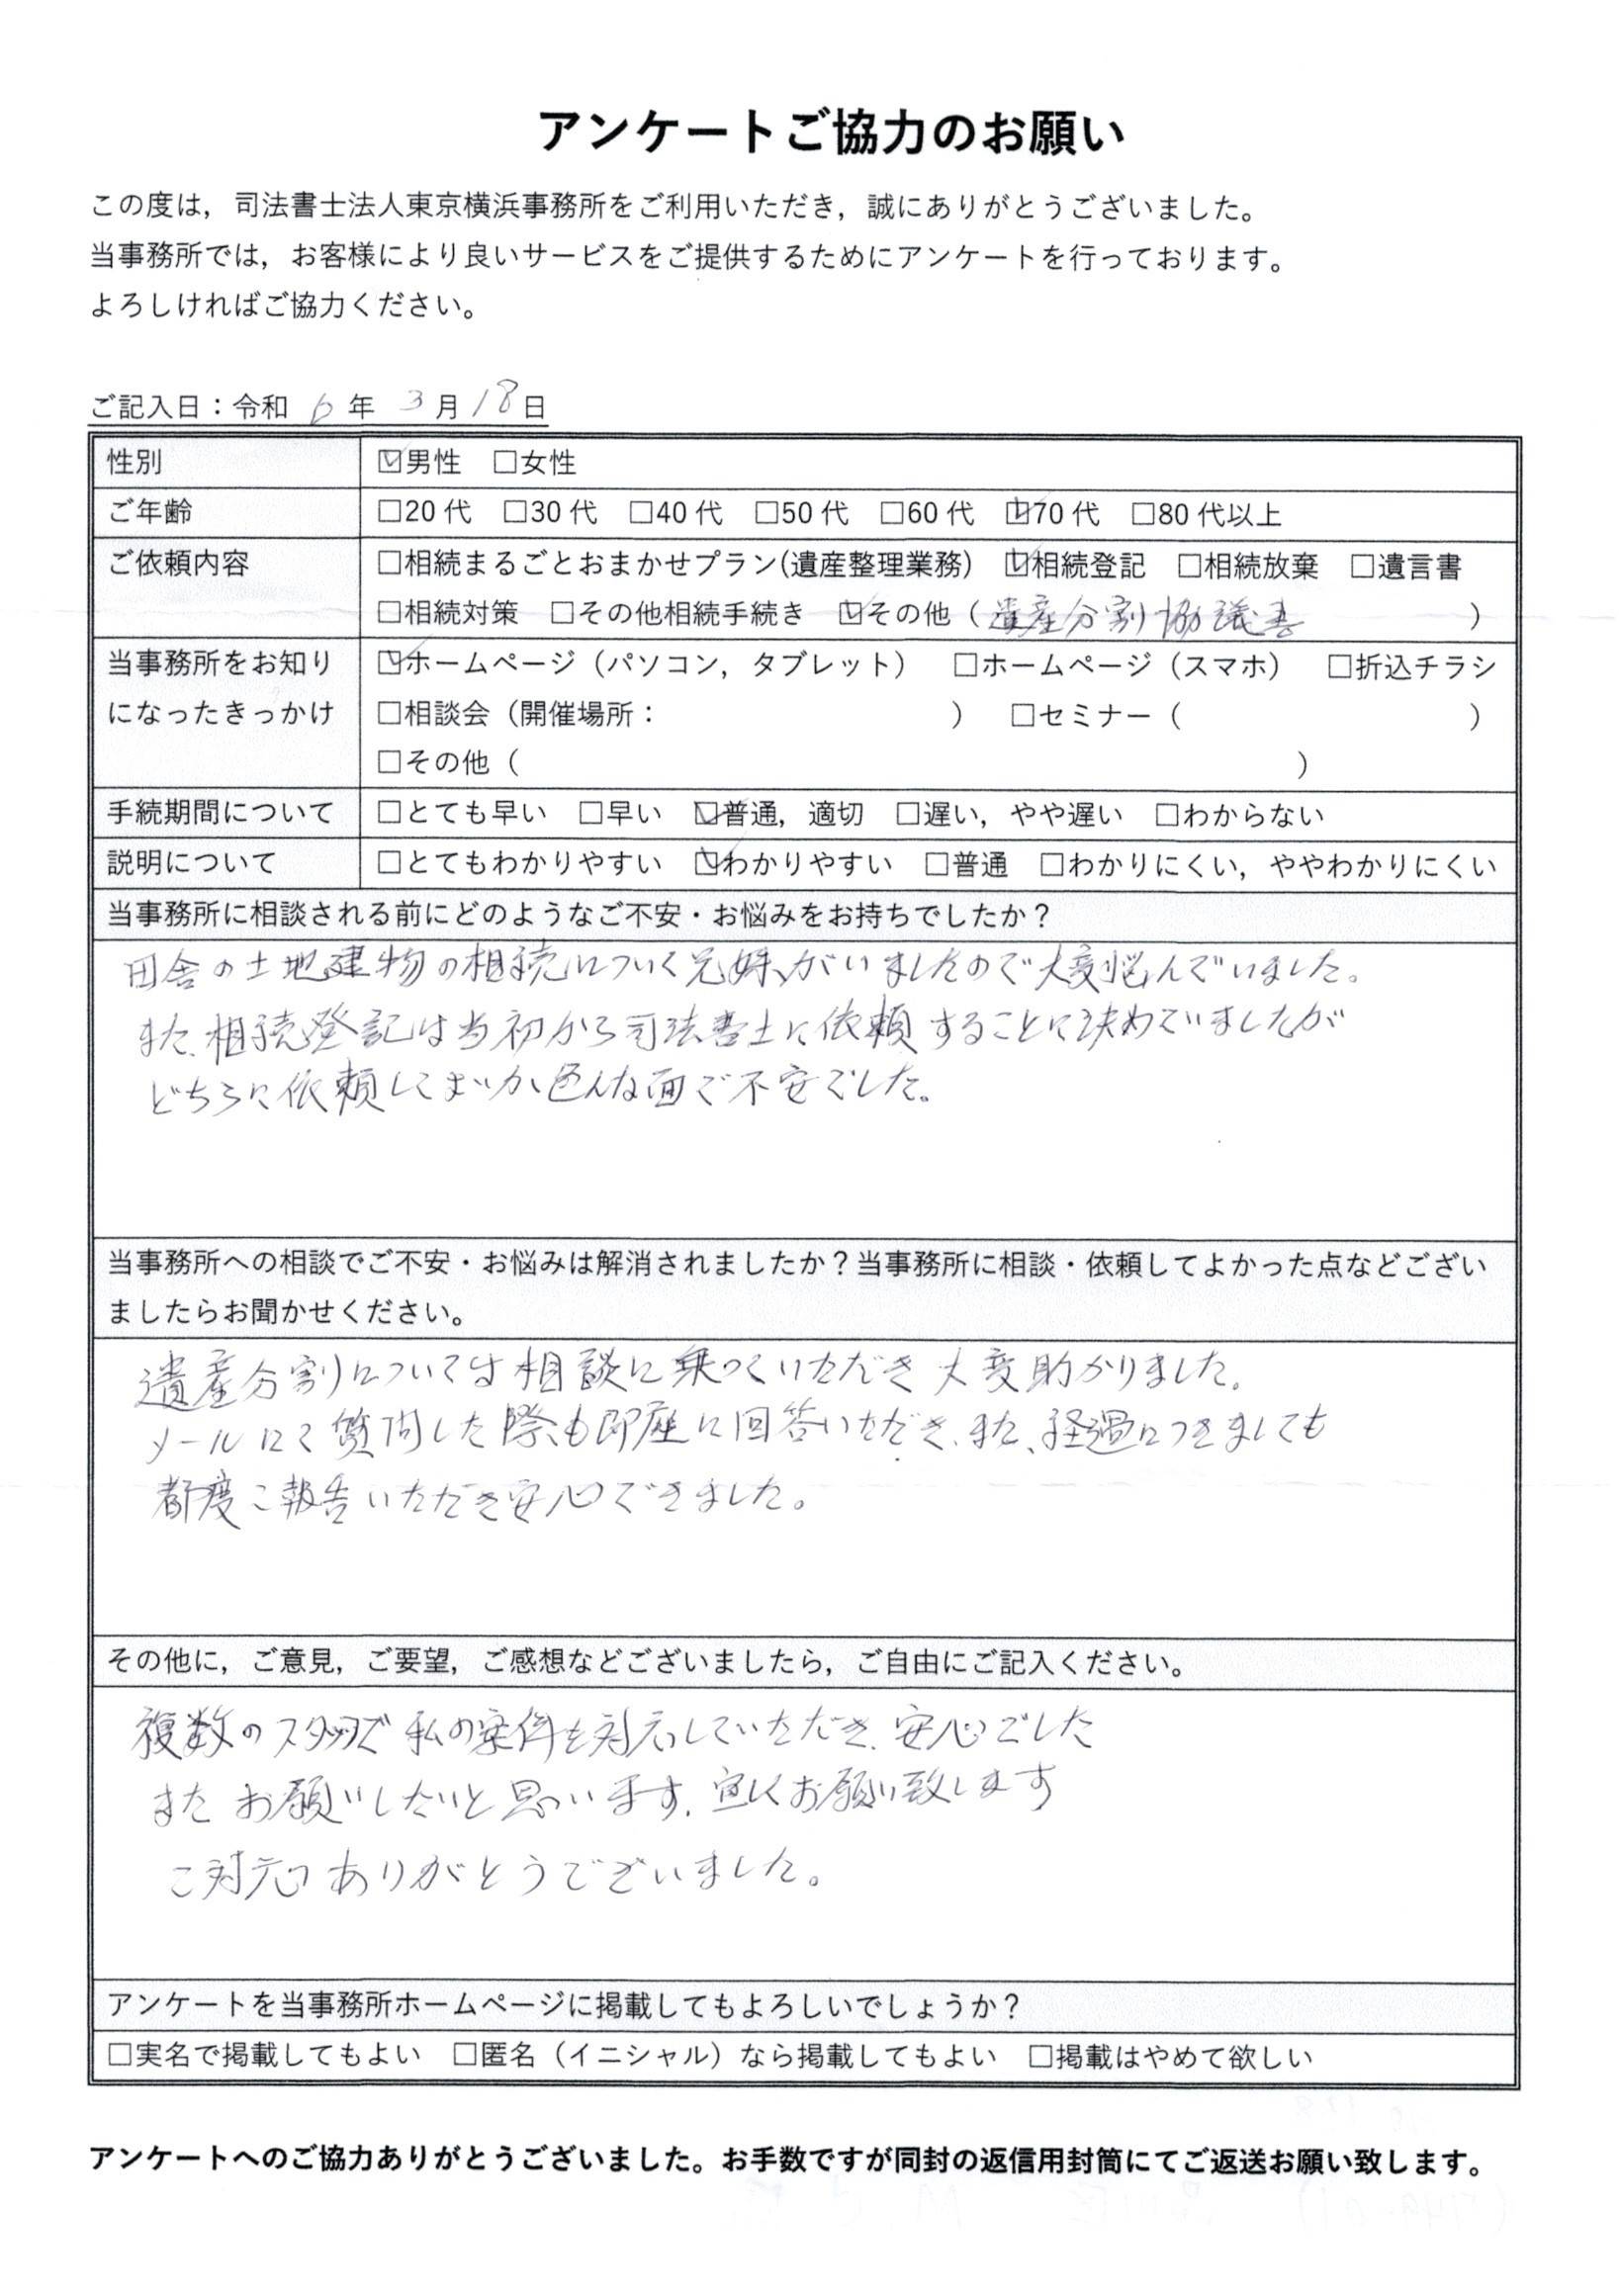 アンケートご協力のお願い
この度は，司法書士法人東京横浜事務所をご利用いただき，誠にありがとうございました。
当事務所では，お客様により良いサービスをご提供するためにアンケートを行っております。
よろしければご協力ください。
ご記入日：令和 6 年 3 月 18 日
性別 ☑男性 □女性
ご年齢 □20 代 □30 代 □40 代 □50 代 □60 代 ☑70 代 □80 代以上
ご依頼内容 □相続まるごとおまかせプラン(遺産整理業務) ☑相続登記 □相続放棄 □遺言書
□相続対策 □その他相続手続き ☑その他（遺産分割協議書）
当事務所をお知り ☑ホームページ（パソコン，タブレット） □ホームページ（スマホ） □折込チラシ
になったきっかけ □相談会（開催場所： ） □セミナー（ ）
□その他（ ）
手続期間について □とても早い □早い ☑普通，適切 □遅い，やや遅い □わからない
説明について □とてもわかりやすい ☑わかりやすい □普通 □わかりにくい，ややわかりにくい
当事務所に相談される前にどのようなご不安・お悩みをお持ちでしたか？
田舎の土地建物の相続について兄妹がいましたので大変悩んでいました。
また、相続登記は当初から司法書士に依頼することに決めていましたが
どちらに依頼してよいか色んな面で不安でした。
当事務所への相談でご不安・お悩みは解消されましたか？当事務所に相談・依頼してよかった点などござい
ましたらお聞かせください。
遺産分割については相談に乗っていただき大変助かりました。
メールにて質問した際も即座に回答いただき、また、経過につきましても
都度ご報告いただき安心できました。
その他に，ご意見，ご要望，ご感想などございましたら，ご自由にご記入ください。
複数のスタッフで私の案件を対応していただき、安心でした
またお願いしたいと思います。宜しくお願い致します
ご対応ありがとうございました。
アンケートを当事務所ホームページに掲載してもよろしいでしょうか？
□実名で掲載してもよい □匿名（イニシャル）なら掲載してもよい □掲載はやめて欲しい
アンケートへのご協力ありがとうございました。お手数ですが同封の返信用封筒にてご返送お願い致します。